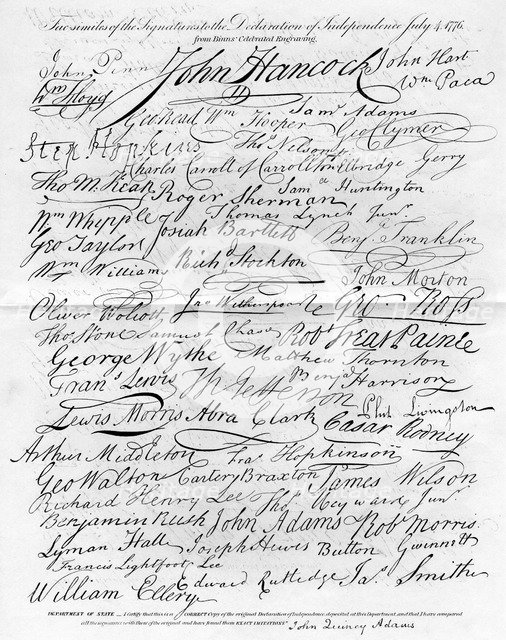 Fac similes of the Signatures to the Declaration of Independence July 4. 1776.
from Binns' Celebrated Engraving.
John Penn John Hancock John Hart
Wm Floyd Wm Paca
Geo Read Wm Hooper Saml Adams
Step. Hopkins Thos Nelson jr Geo Clymer
Charles Carroll of Carrollton Elbridge Gerry
Tho M:Kean Roger Sherman Saml Huntington
Wm Whipple Thomas Lynch Junr.
Geo Taylor Josiah Bartlett Benja Franklin
Wm Williams Richd Stockton John Morton
Oliver Wolcott Jno Witherspoon Geo. Ross
Thos Stone Samuel Chase Robt Treat Paine
George Wythe Matthew Thornton
Frans Lewis Th Jefferson Benja Harrison
Lewis Morris Abra Clark Phil. Livingston
Cæsar Rodney
Arthur Middleton Fras Hopkinson
Geo Walton Carter Braxton James Wilson
Richard Henry Lee Thos Heyward Junr.
Benjamin Rush John Adams Robt Morris
Lyman Hall Joseph Hewes Button Gwinnett
Francis Lightfoot Lee
William Ellery Edward Rutledge Jas. Smith
DEPARTMENT OF STATE _ I certify that this is a CORRECT Copy of the original Declaration of Independence, deposited at this Department, and that I have compared
all the signatures with those of the original and have found them EXACT IMITATIONS. John Quincy Adams